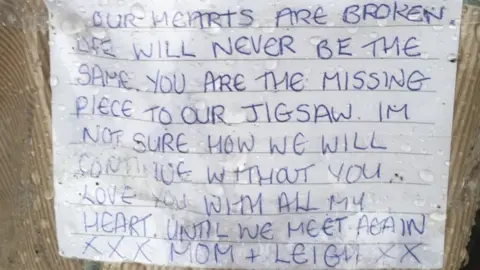 OUR HEARTS ARE BROKEN.
LIFE WILL NEVER BE THE
SAME. YOU ARE THE MISSING
PIECE TO OUR JIGSAW. IM
NOT SURE HOW WE WILL
CONTINUE WITHOUT YOU.
LOVE YOU WITH ALL MY
HEART. UNTIL WE MEET AGAIN
XXX MOM + LEIGH XX